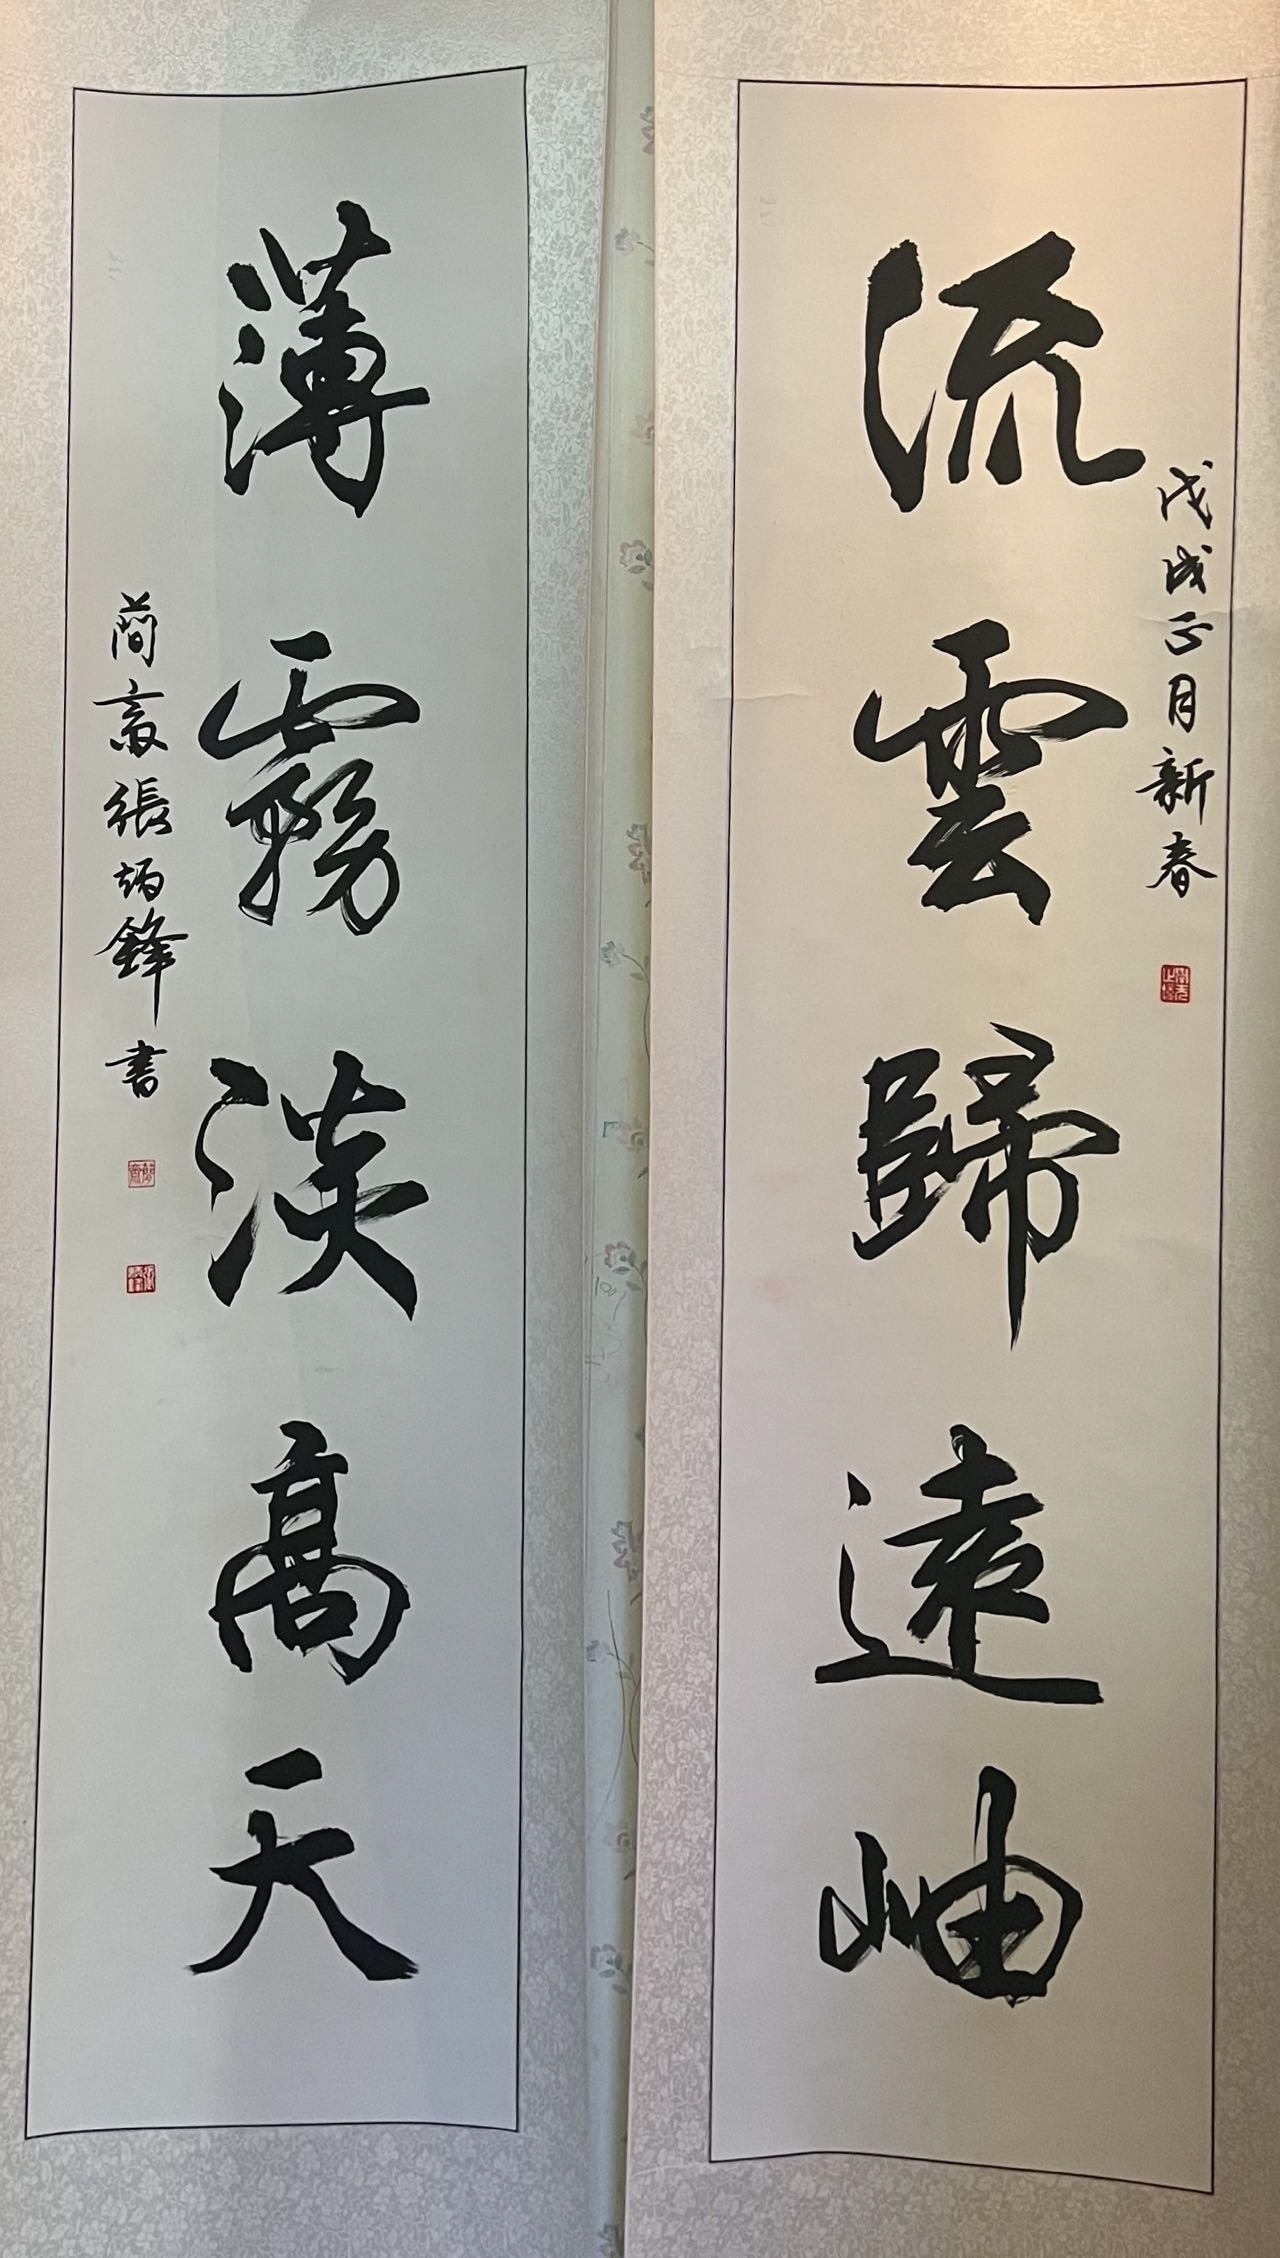 流雲歸遠岫
戊戌正月新春
薄霧淡高天
蕳齋張炳鋒書